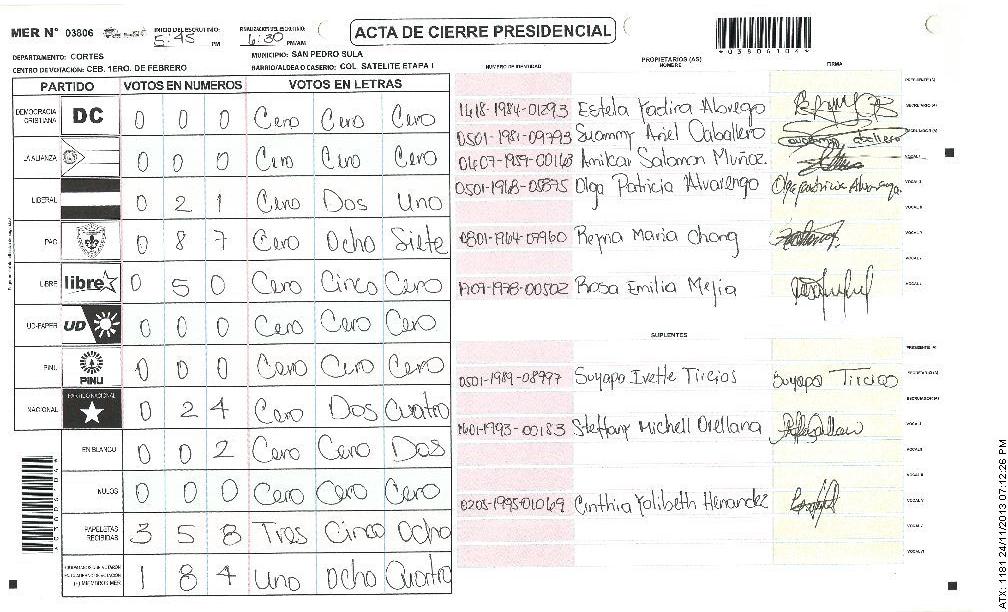 MER N° 03806 INICIO DEL ESCRUTINIO: 5:45 PM FINALIZACION DEL ESCRUTINIO: 6:30 PM/AM ACTA DE CIERRE PRESIDENCIAL
DEPARTAMENTO: CORTES MUNICIPIO: SAN PEDRO SULA
CENTRO DE VOTACION: CEB. 1ERO. DE FEBRERO BARRIO/ALDEA O CASERIO: COL SATELITE ETAPA I
PARTIDO VOTOS EN NUMEROS VOTOS EN LETRAS
DEMOCRACIA CRISTIANA DC 0 0 0 Cero Cero Cero
LA ALIANZA 0 0 0 Cero Cero Cero
LIBERAL 0 2 1 Cero Dos Uno
PAC 0 8 7 Cero Ocho Siete
LIBRE libre 0 5 0 Cero Cinco Cero
UD-FAPER UD 0 0 0 Cero Cero Cero
PINU PINU 0 0 0 Cero Cero Cero
NACIONAL PARTIDO NACIONAL 0 2 4 Cero Dos Cuatro
EN BLANCO 0 0 2 Cero Cero Dos
NULOS 0 0 0 Cero Cero Cero
PAPELETAS RECIBIDAS 3 5 8 Tres Cinco Ocho
1 8 4 Uno Ocho Cuatro
NUMERO DE IDENTIDAD PROPIETARIOS (AS) NOMBRE FIRMA
1418-1984-01293 Estela Yadira Alvarego
0501-1981-09793 Suammy Ariel Caballero
0607-1957-00163 Amilcar Salomon Muñoz
0501-1968-05875 Olga Patricia Alvarengo Olga patricia Alvarenga
0801-1964-07960 Reyna Maria Chong
1707-1978-00502 Rosa Emilia Mejia
SUPLENTES
0501-1989-08997 Suyapa Ivette Tircios Suyapa Tircios
1601-1993-00183 Steffany Michell Orellana
0205-1995-01069 Cinthia Yolibeth Hernandez
ATX: 1181 24/11/2013 07:12:26 PM